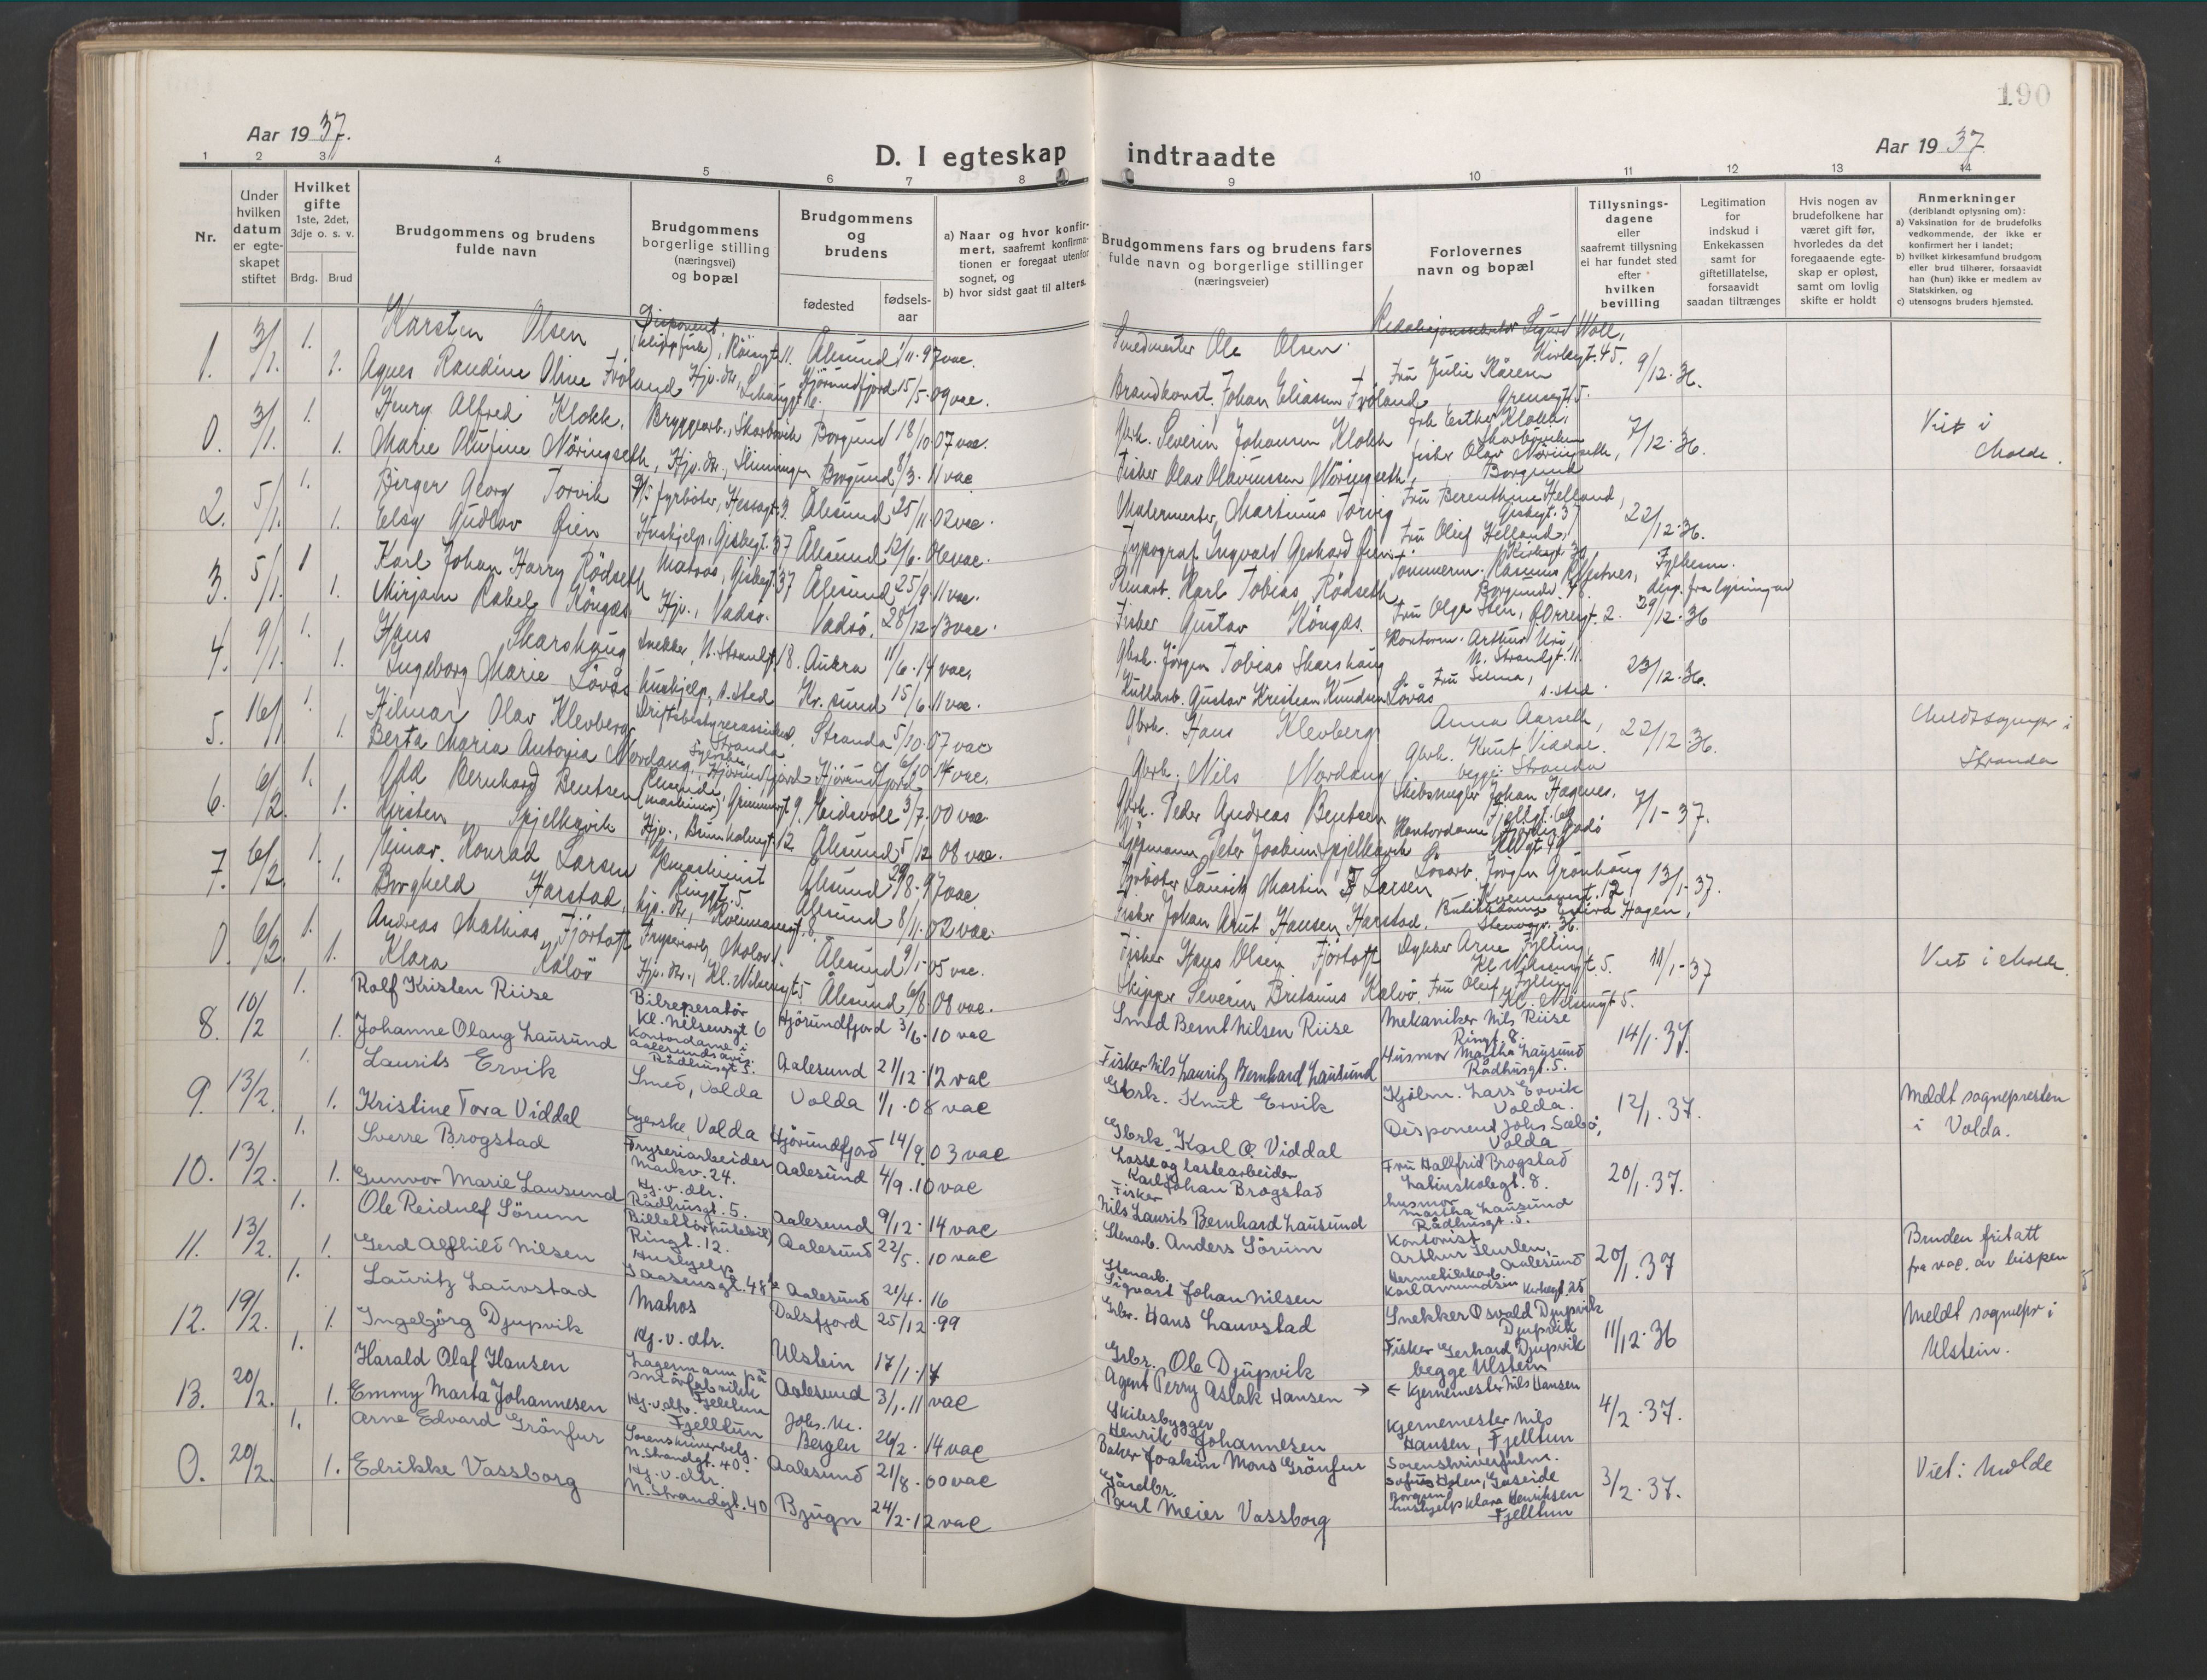 190
Aar 1937.
D. I egteskap indtraadte
Aar 1937
1 2 3 4 5 6 7 8 9 10 11 12 13 14
Nr.
Under hvilken datum er egteskapet stiftet
Hvilket gifte 1ste, 2det, 3dje o. s. v.
Brdg. Brud
Brudgommens og brudens fulde navn
Brudgommens borgerlige stilling (næringsvei) og bopæl
Brudgommens og brudens
fødested
fødselsaar
a) Naar og hvor konfirmert, saafremt konfirmationen er foregaat utenfor sognet, og
b) hvor sidst gaat til alters.
Brudgommens fars og brudens fars fulde navn og borgerlige stillinger (næringsveier)
Forlovernes navn og bopæl
Tillysningsdagene eller saafremt tillysning ei har fundet sted efter hvilken bevilling
Legitimation for indskud i Enkekassen samt for giftetillatelse, forsaavidt saadan tiltrænges
Hvis nogen av brudefolkene har været gift før, hvorledes da det foregaaende egteskap er opløst, samt om lovlig skifte er holdt
Anmerkninger (deriblandt oplysning om):
a) Vaksination for de brudefolks vedkommende, der ikke er konfirmert her i landet;
b) hvilket kirkesamfund brudgom eller brud tilhører, forsaavidt han (hun) ikke er medlem av Statskirken, og
c) utensogns bruders hjemsted.
1. 3/1. 1. Karsten Olsen Disponent, (klippfisk), Røisegt. 11. Ålesund 1/11.97 vac. Smedmester Ole Olsen. Sigurd Wall, Kirkegt. 45. 9/12.36.
1. Agnes Randine Oline Frøland Hjv. dtr. Hjørundfjord 15/5.09 vac. Brandkonst. Johan Eliassen Frøland Fru Julie Kåresen Grensegt. 5.
0. 3/1. 1. Henry Alfred Klokk. Bryggearb., Skarbøvik Borgund 18/10.07 vac. Gbrk. Severin Johansen Klokk frk Esther Klokk, Skarbøvika 7/12.36. Viet i Molde.
1. Marie Olufine Nöringseth, Hjv. dtr., Slinningen Borgund 8/3.11 vac Fisker Olav Olavinussen Nöringseth, fisker Olav Nöringseth, Borgund
2. 5/1. 1. Birger Georg Torvik fyrbøter, Hessagt. 9. Ålesund 25/11.02 vac. Malermester Martinus Torvig Fru Berenthine Helland, Gisbegt. 37 22/12.36.
1. Elsy Gudlov Øien Hushjelp, Gisbegt. 37 Ålesund 12/6.06 vac. Typograf Ingvald Gerhard Øien Fru Oleif Helland, Kirkegt 30
3. 5/1. 1 Karl Johan Harry Rödseth Matros, Gisbegt. 37 Ålesund 25/9.11 vac. Stuart. Karl Tobias Rödseth Tömmerm. Rasmus Kløfsnes, Borgundv. 48. Fylkesm. disp. fra lysning av 29/12.36
1. Mirjam Rakel Köngäs Hjv., Vadsö. Vadsö. 28/12.13 vac. Fisker Gustav Köngäs. Fru Olga Sten, Ø. Orregt. 2.
4. 9/1. 1. Hans Skarshaug Snekker, N. Strandgt. 18. Aukra 11/6.14 vac. Gbrk. Jörgen Tobias Skarshaug Kontorm. Arthur Uri, N. Strandgt. 11. 23/12.36.
1. Ingeborg Marie Lövås hushjelp, s. sted Kr.sund 15/6.11 vac. Kullarb. Gustav Kristian Knudsen Lövås Fru Selma, s. sted.
5. 16/1 1. Hilmar Olav Klevberg Driftsbestyrerassistent, Stranda Stranda 5/10.07 vac Gbrk. Hans Klevberg Anna Aarseth, 22/12.36. Meldt sognepr i Stranda
1. Berta Maria Antonia Nordang, Syerske, Hjørundfjord Hjørundfjord 6/10.14 vac. Gbrk. Nils Nordang Gbrk. Knut Viddal. begge Stranda
6. 6/2. 1. Odd Bernhard Bentsen (maskiner), Grimmergt. 9. Eidsvoll 3/7.00 vac. Gbrk. Peder Andreas Bentsen Skibsmegler Johan Hagenes, Fjellgt. 69 7/1-37.
1. Kirsten Spjelkavik Hjv., Brunholmgt. 12 Ålesund 5/12 08 vac. Kjøpmann Peter Joakim Spjelkavik Kontordame
7. 6/2. 1. Einar Konrad Larsen Maskinist Ringgt. 5. Ålesund 29/8.97 vac Fyrbøter Lauritz Martin Larsen Lösarb. Jörgen Grönhaug Kvennavnt. 12 13/1-37.
1. Borghild Harstad, hjv. dtr., Kvennavnt. 8. Ålesund 8/11.02 vac. Fisker Johan Arnt Hansen Harstad. Butikkdame Hagen, Stenvgr. 36.
0. 6/2. 1. Andreas Mathias Fjörtoft Fryseriarb., Molov. Ålesund 9/1-05 vac. Fisker Hans Olsen Fjörtoft Dykker Arne Fylling, Kl. Nilsensgt. 5. 11/1-37 Viet i Molde.
1. Klara Kalvö Hjv. dtr., Kl. Nilsensgt 5 Ålesund 6/8.08 vac. Skipper Severin Britanus Kalvö. Fru Oleif Fylling, Kl. Nilsensgt 5.
8. 10/2 1. Rolf Kristen Riise Bilreperatør Kl. Nilsensgt 6 Hjörundfjord 3/6.10 vac Smed Bernt Nilsen Riise Mekaniker Nils Riise Ringt. 8. 14/1.37.
1. Johanne Olaug Lausund Kontordame i Aalesunds avis. Rådhusgt 5. Aalesund 21/12.12 vac Fisker Nils Lauritz Bernhard Lausund Husmor Martha Lausund Rådhusgt. 5.
9. 13/2. 1. Laurits Ervik Smed, Volda Volda 1/1.08 vac Gbrk. Knut Ervik Kjølm. Lars Ervik Volda. 12/1.37. Meldt sognepresten i Volda.
1. Kristine Tora Viddal Syerske, Volda Hjörundfjord 14/9.03 vac Gbrk. Karl O. Viddal Disponent Johs Sæbö, Volda
10. 13/2. 1. Sverre Brogstad Fryseriarbeider Markv. 24. Aalesund 4/9.10 vac Losse og lastearbeider Karl Johan Brogstad Fru Hallfrid Brogstad Latinskolegt. 8. 20/1.37.
1. Gunvor Marie Lausund Hj. v. dtr. Rådhusgt. 5. Aalesund 9/12.14 vac Fisker Nils Laurits Bernhard Lausund husmor Martha Lausund Rådhusgt. 5.
11. 13/2. 1. Ole Reidulf Sörum Billettör (rutebil) Ringt. 12. Aalesund 22/5.10 vac Stenarb. Anders Sörum Kontorist Arthur Hurlen, Aalesund 20/1.37 Bruden fritatt fra vac. av bispen
1. Gerd Alfhild Nilsen Hushjelp I Aasensgt. 48 Aalesund 21/4.16 Stenarb. Sigvart Johan Nilsen Hermetikkarb. Karl Amundsen Kirkegt. 25
12. 19/2. 1. Lauritz Lauvstad Matros Dalsfjord 25/12.99 Grbr. Hans Lauvstad Snekker Osvald Djupvik Djupvik 11/12.36 Meldt sognepr i Ulstein.
1. Ingebjörg Djupvik Hj. v. dtr. Ulstein 17/1.17 Grbr. Ole Djupvik Fisker Gerhard Djupvik begge Ulstein
13. 20/2. 1. Harald Olaf Hansen Lagermann på smörfabrikk Fjelltun Aalesund 3/1.11 vac Agent Perry Aslak Hansen → ← Kjernemester Nils Hansen 4/2.37.
1. Emmy Marta Johannesen Hj. v. dtr. Fjelltun Bergen 26/2.14 vac Skibsbygger Henrik Johannesen Kjernemester Nils Hansen, Fjelltun
0. 20/2. 1. Arne Edvard Grönfur N. Strandgt. 40. Aalesund 21/8.00 vac Baker Joakim Mons Grönfur Sorenskriverfulm. Sofus Holen, Gåseide Borgund 3/2.37. Viet: Molde
1. Edrikke Vassborg Hj. v. dtr. N. Strandgt. 40 Bjugn 24/2.12 vac Gårdbr. Paul Meier Vassborg hushjelp Klara Henriksen Fjelltun